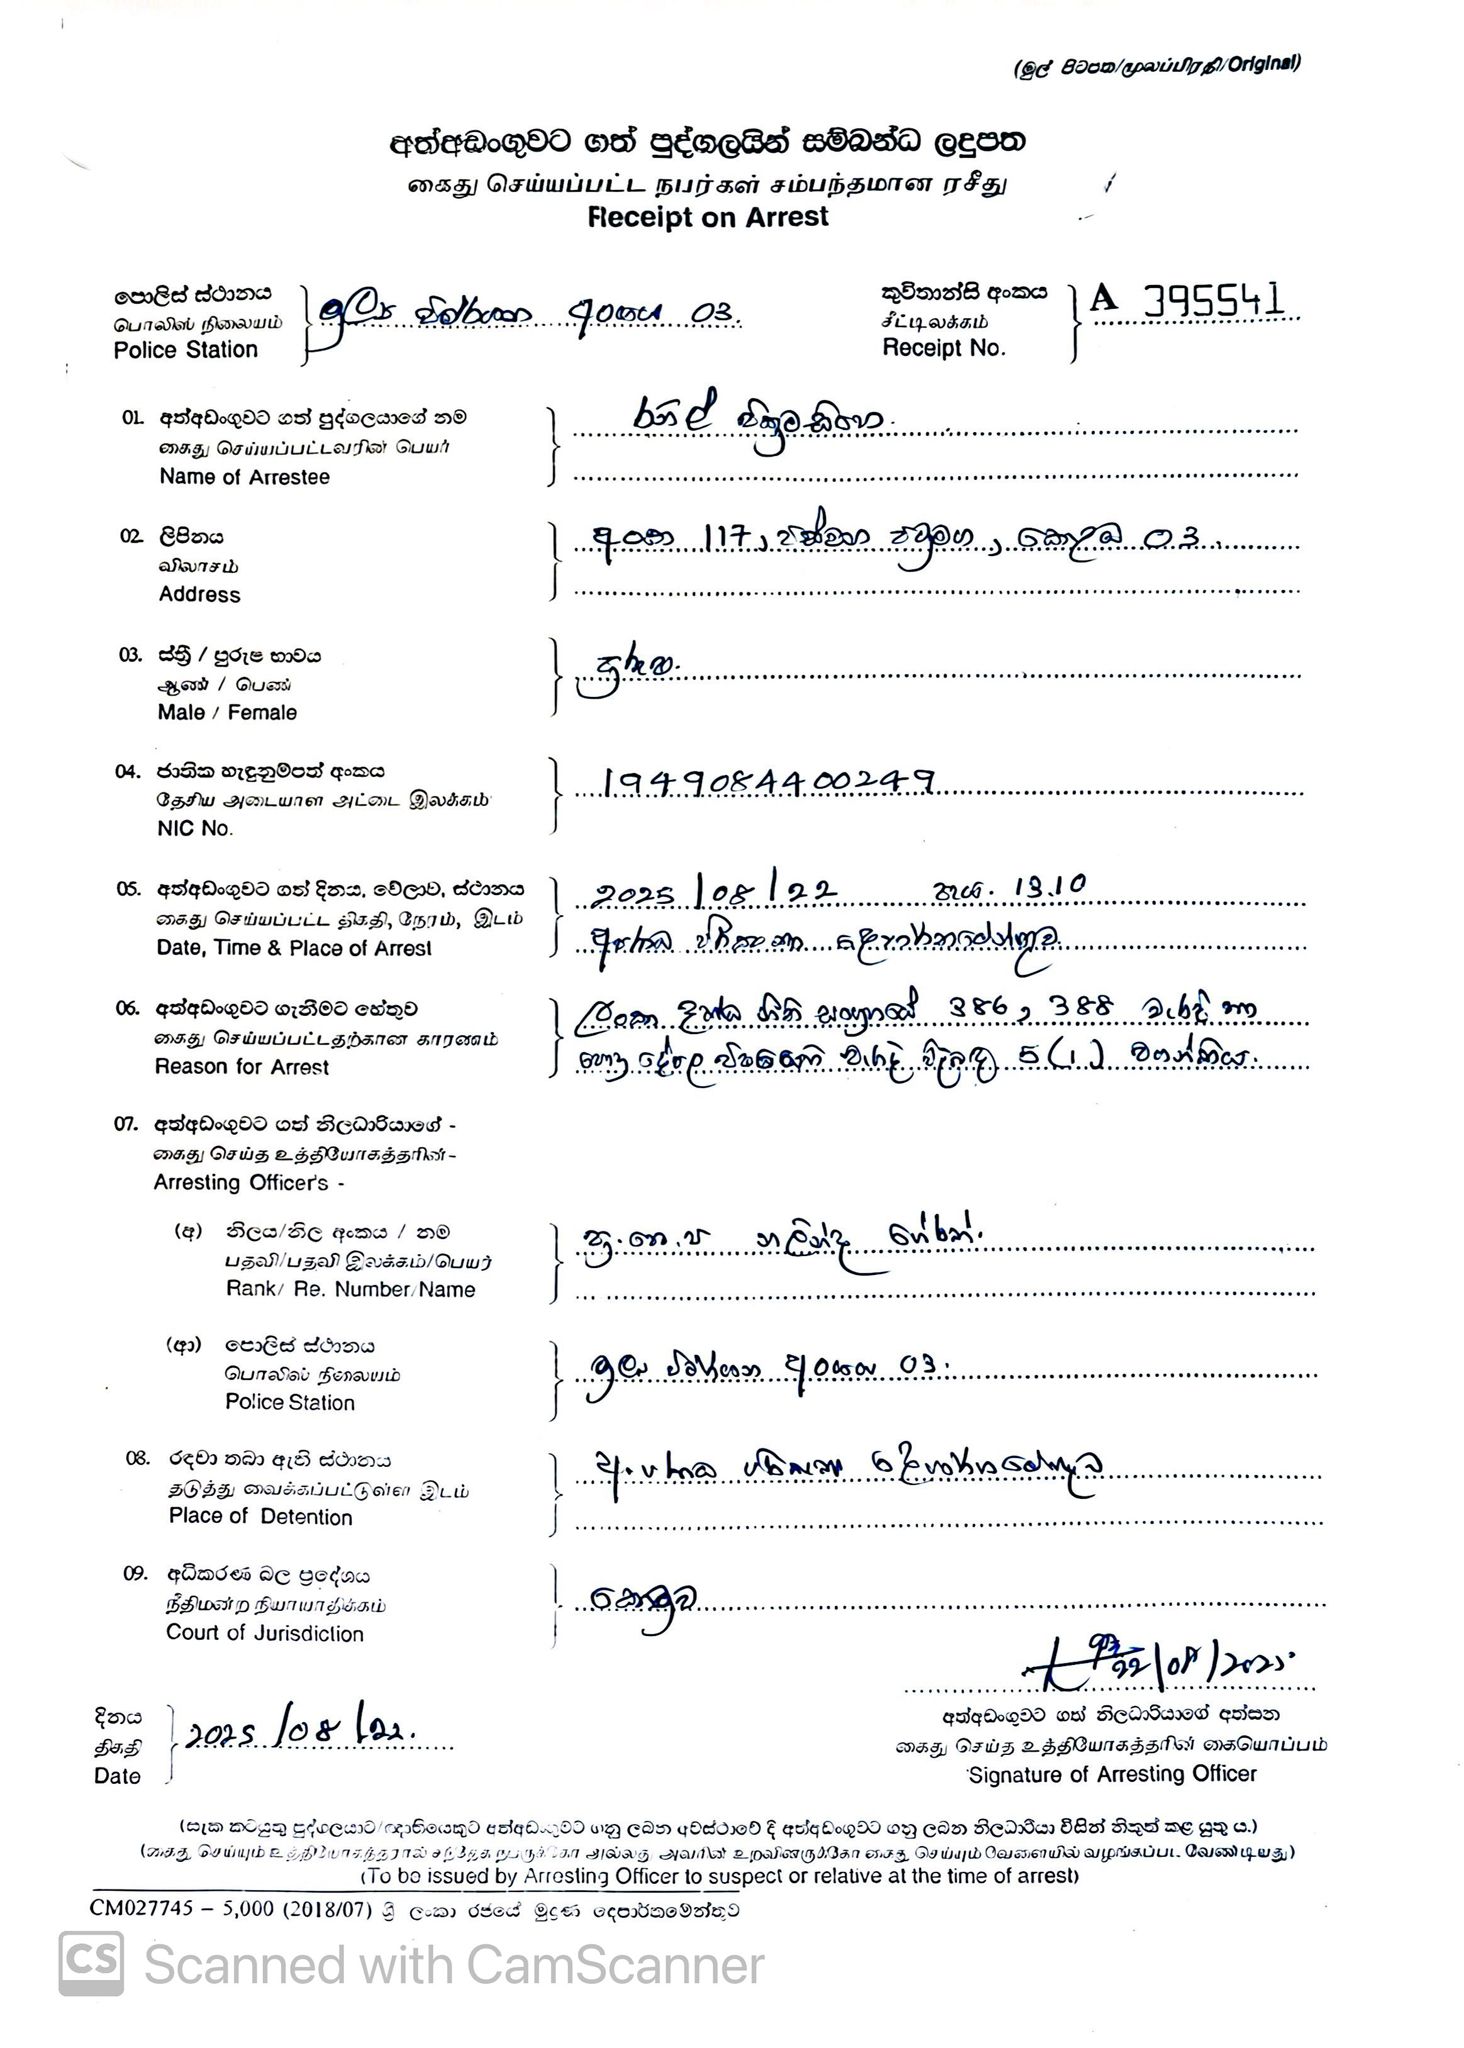 (මුල් පිටපත/மூலப்பிரதி/Original)
අත්අඩංගුවට ගත් පුද්ගලයින් සම්බන්ධ ලදුපත
கைது செய்யப்பட்ட நபர்கள் சம்பந்தமான ரசீது
Receipt on Arrest
පොලිස් ස්ථානය
பொலிஸ் நிலையம்
Police Station
මූල්‍ය විමර්ශන අංශය 03.
කුවිතාන්සි අංකය
சீட்டிலக்கம்
Receipt No.
A 395541
01. අත්අඩංගුවට ගත් පුද්ගලයාගේ නම
கைது செய்யப்பட்டவரின் பெயர்
Name of Arrestee
රනිල් වික්‍රමසිංහ.
02. ලිපිනය
விலாசம்
Address
අංක 117, පස්වන පටුමග, කොළඹ 03.
03. ස්ත්‍රී / පුරුෂ භාවය
ஆண் / பெண்
Male / Female
පුරුෂ.
04. ජාතික හැඳුනුම්පත් අංකය
தேசிய அடையாள அட்டை இலக்கம்
NIC No.
194908400249
05. අත්අඩංගුවට ගත් දිනය, වේලාව, ස්ථානය
கைது செய்யப்பட்ட திகதி, நேரம், இடம்
Date, Time & Place of Arrest
2025/08/22 පැය. 13.10
අපරාධ පරීක්ෂණ දෙපාර්තමේන්තුව
06. අත්අඩංගුවට ගැනීමට හේතුව
கைது செய்யப்பட்டதற்கான காரணம்
Reason for Arrest
ලංකා දණ්ඩ නීති සංග්‍රහයේ 386, 388 වැරදි හා
පොදු දේපල පිළිබඳ 5(1) වගන්තිය.
07. අත්අඩංගුවට ගත් නිලධාරියාගේ -
கைது செய்த உத்தியோகத்தரின் -
Arresting Officer's -
(අ) නිලය/නිල අංකය / නම
பதவி/பதவி இலக்கம்/பெயர்
Rank/ Re. Number/Name
පො.ප නලින්ද හේරත්.
(ආ) පොලිස් ස්ථානය
பொலிஸ் நிலையம்
Police Station
මූල්‍ය විමර්ශන අංශය 03.
08. රඳවා තබා ඇති ස්ථානය
தடுத்து வைக்கப்பட்டுள்ள இடம்
Place of Detention
අපරාධ පරීක්ෂණ දෙපාර්තමේන්තුව
09. අධිකරණ බල ප්‍රදේශය
நீதிமன்ற நியாயாதிக்கம்
Court of Jurisdiction
කොටුව
22/08/2025
අත්අඩංගුවට ගත් නිලධාරියාගේ අත්සන
கைது செய்த உத்தியோகத்தரின் கையொப்பம்
Signature of Arresting Officer
දිනය
திகதி
Date
2025/08/22.
(සැක කටයුතු පුද්ගලයාට/ඥාතියෙකුට අත්අඩංගුවට ගනු ලබන අවස්ථාවේ දී අත්අඩංගුවට ගනු ලබන නිලධාරියා විසින් නිකුත් කළ යුතු ය.)
(கைது செய்யும் உத்தியோகத்தரால் சந்தேக நபருக்கோ அல்லது அவரின் உறவினருக்கோ கைது செய்யும் வேளையில் வழங்கப்பட வேண்டியது)
(To be issued by Arresting Officer to suspect or relative at the time of arrest)
CM027745 – 5,000 (2018/07) ශ්‍රී ලංකා රජයේ මුද්‍රණ දෙපාර්තමේන්තුව
CS Scanned with CamScanner